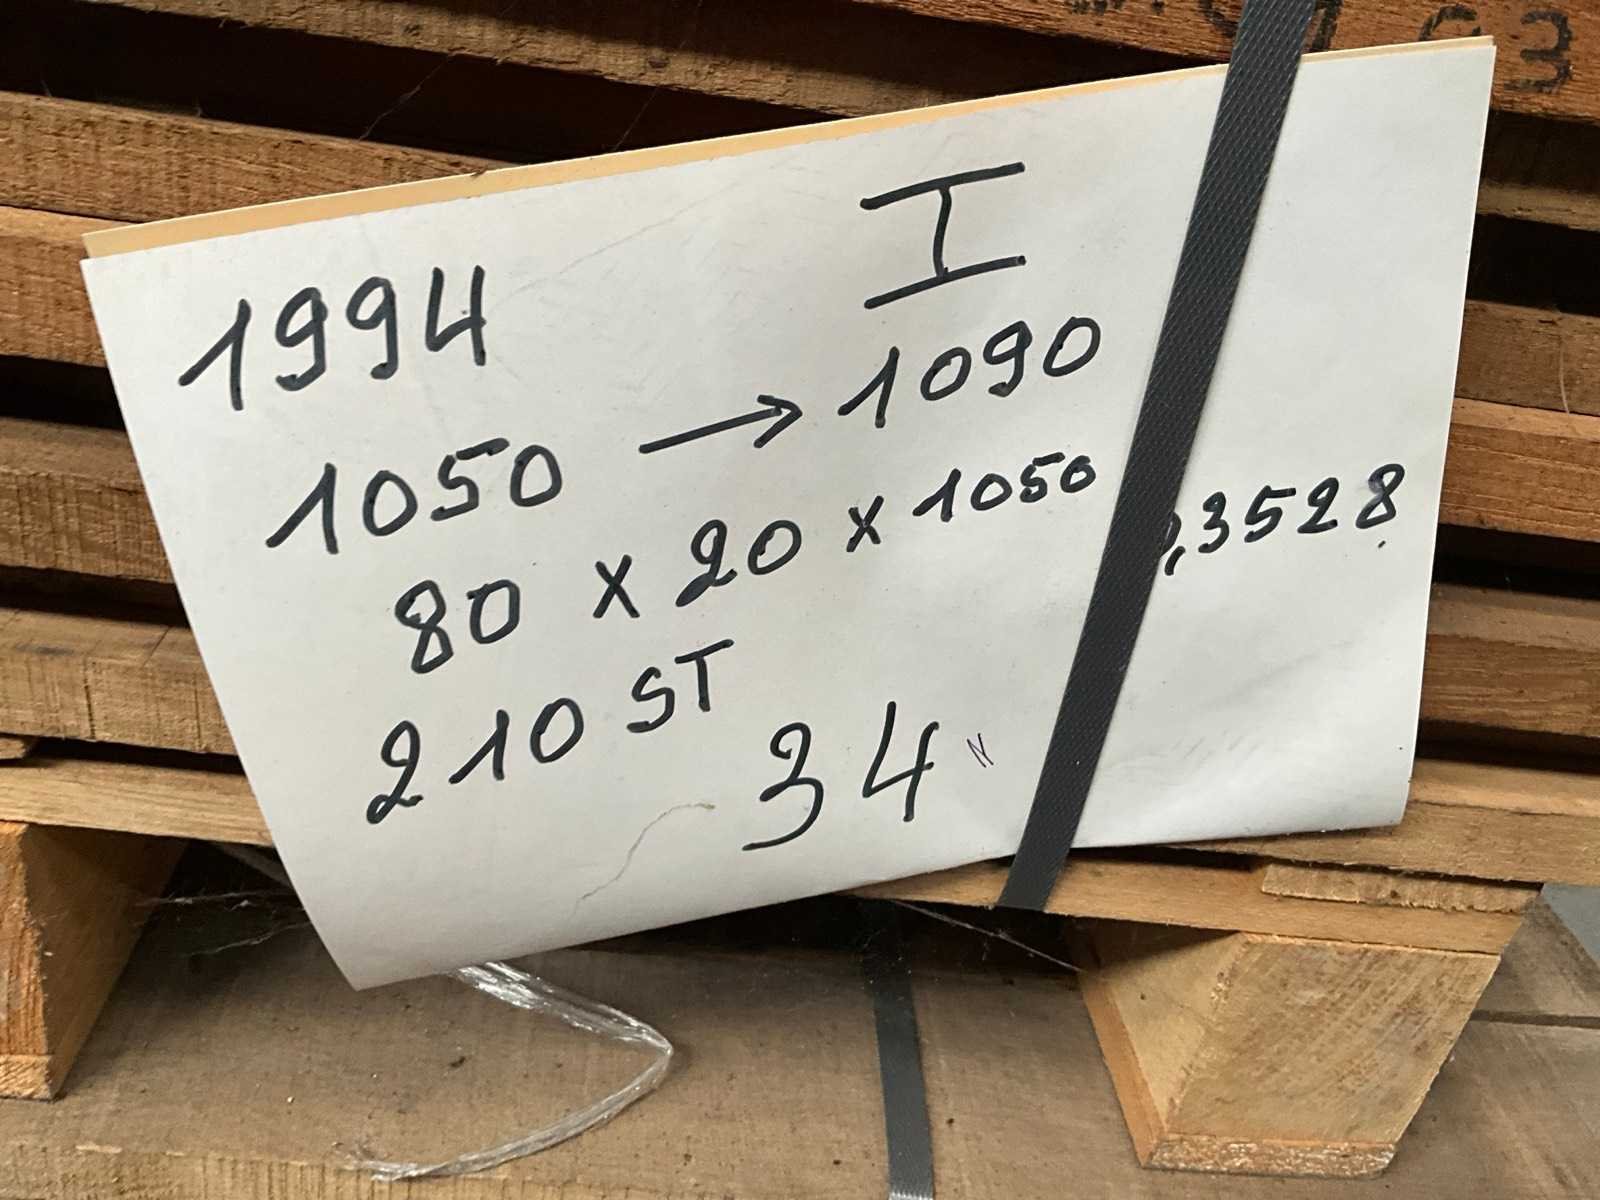 I
1994
1050 → 1090
80 x 20 x 1050 ,3528
210 ST
34